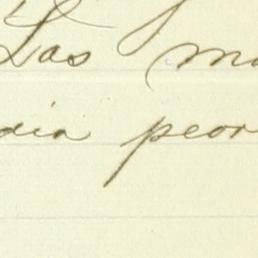 Las ma
dia peor